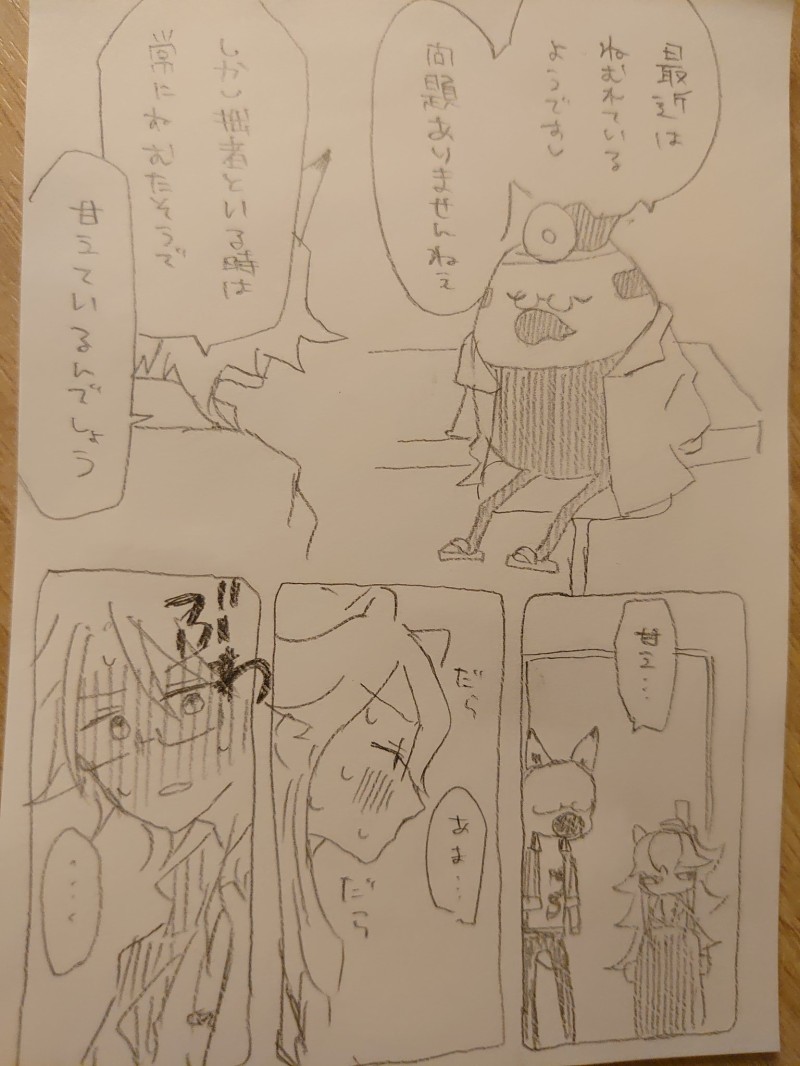 最近は
ねむれている
ようですし
問題ありませんねぇ
しかし拙者といる時は
常にねむたそうで
甘えているんでしょう
甘え…
だら
あま…
だら
ぶわっ
…。